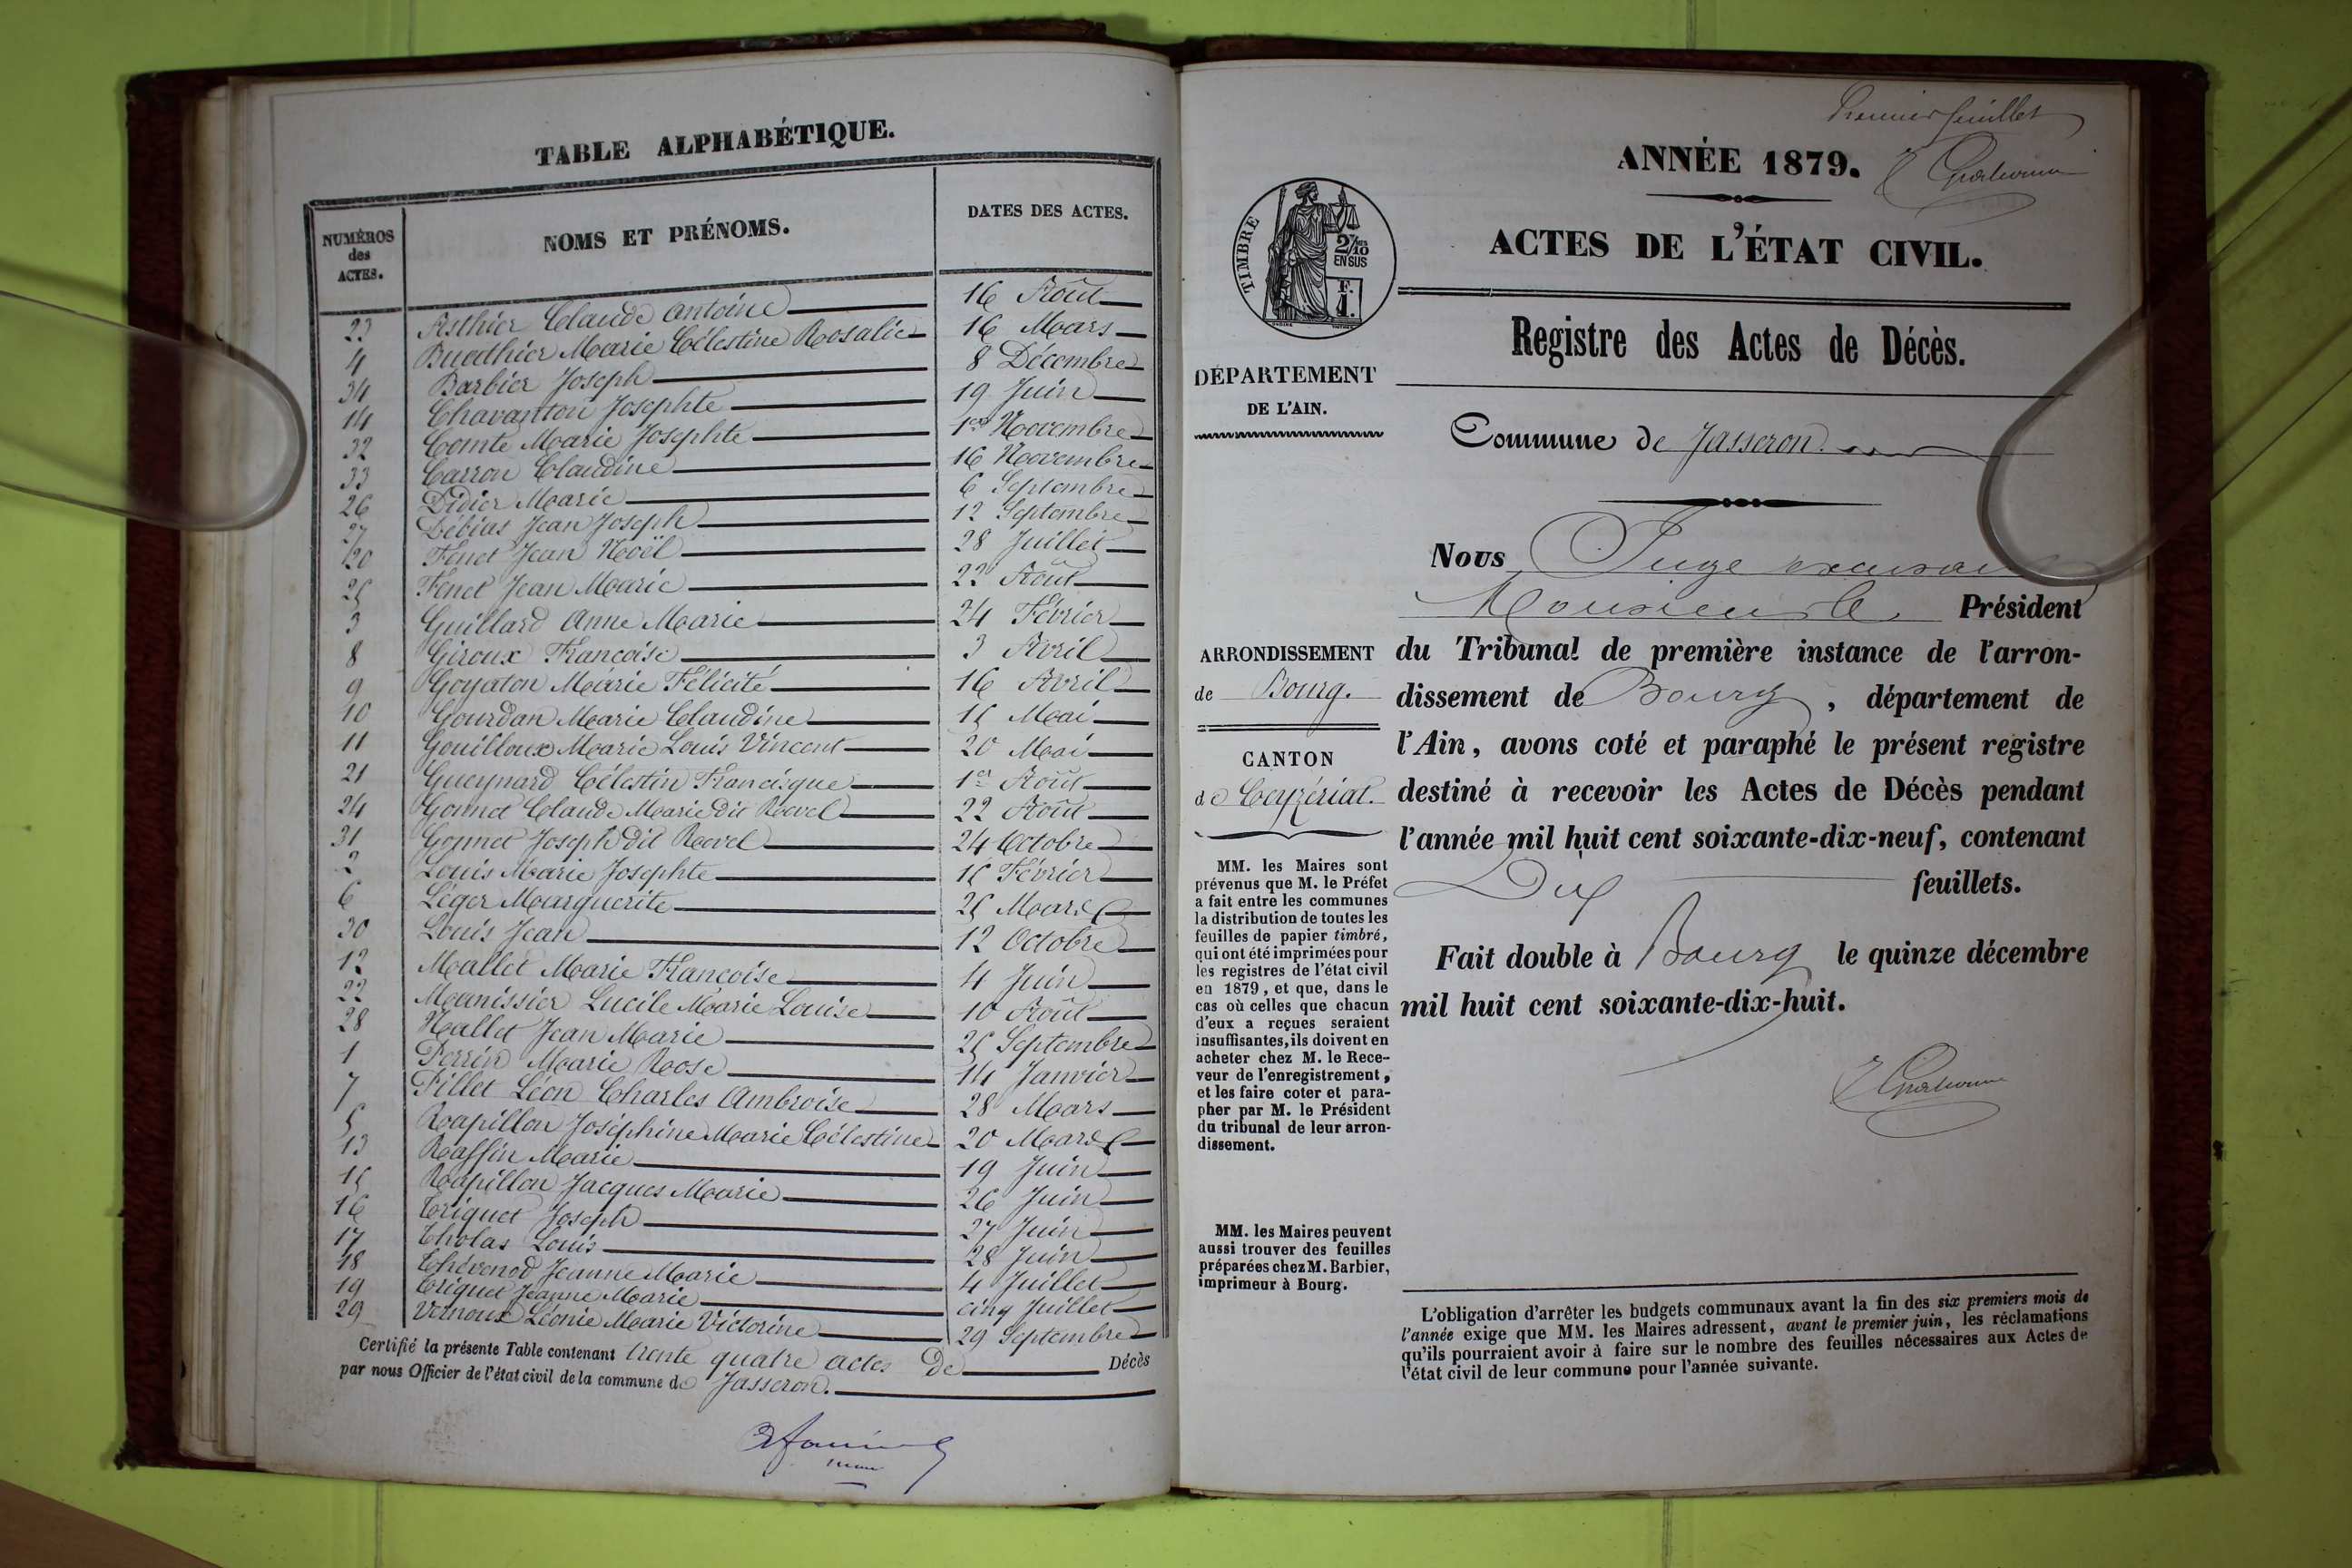 TABLE ALPHABÉTIQUE.
NUMÉROS des ACTES. NOMS ET PRÉNOMS. DATES DES ACTES.
23 Asthier Claude Antoine 16 Août
4 Buathier Marie Célestine Rosalie 16 Mars
34 Barbier Joseph 8 Décembre
14 Chavanton Josephte 19 Juin
32 Comte Marie Josephte 1er Novembre
33 Carron Claudine 16 Novembre
26 Didier Marie 6 Septembre
27 Débias Jean Joseph 12 Septembre
20 Fenet Jean Noël 28 Juillet
25 Fenet Jean Marie 22 Août
3 Guillard Anne Marie 24 Février
8 Giroux Françoise 3 Avril
9 Goyaton Marie Félicité 16 Avril
10 Gourdan Marie Claudine 15 Mai
11 Gouilloux Marie Louis Vincent 20 Mai
21 Gueynard Célestin Francisque 1er Août
24 Gonnet Claude Marie dit Revel 22 Août
31 Gonnet Joseph dit Revel 24 Octobre
2 Louis Marie Josephte 15 Février
6 Léger Marguerite 25 Mars
30 Louis Jean 12 Octobre
12 Mallet Marie Françoise 4 Juin
22 Meunissier Lucile Marie Louise 10 Août
28 Nallet Jean Marie 25 Septembre
1 Perrin Marie Rose 14 Janvier
7 Pillet Léon Charles Ambroise 28 Mars
5 Rapillon Joséphine Marie Célestine 20 Mars
13 Raffin Marie 19 Juin
15 Rapillon Jacques Marie 26 Juin
16 Triquet Joseph 27 Juin
17 Tholas Louis 28 Juin
18 Thévenod Jeanne Marie 4 Juillet
19 Triquet Jeanne Marie cinq Juillet
29 Vernoux Léonie Marie Victorine 29 Septembre
Certifié la présente Table contenant trente quatre actes de Décès
par nous Officier de l'état civil de la commune de Jasseron.
Premier feuillet
ANNÉE 1879.
ACTES DE L'ÉTAT CIVIL.
TIMBRE
2/10
EN SUS
Registre des Actes de Décès.
DÉPARTEMENT
DE L'AIN.
Commune de Jasseron.
ARRONDISSEMENT
de Bourg.
CANTON
de Ceyzériat.
MM. les Maires sont
prévenus que M. le Préfet
a fait entre les communes
la distribution de toutes les
feuilles de papier timbré,
qui ont été imprimées pour
les registres de l'état civil
en 1879, et que, dans le
cas où celles que chacun
d'eux a reçues seraient
insuffisantes, ils doivent en
acheter chez M. le Rece-
veur de l'enregistrement,
et les faire coter et para-
pher par M. le Président
du tribunal de leur arron-
dissement.
MM. les Maires peuvent
aussi trouver des feuilles
préparées chez M. Barbier,
imprimeur à Bourg.
Nous Juge
Monsieur le Président
du Tribunal de première instance de l'arron-
dissement de Bourg, département de
l'Ain, avons coté et paraphé le présent registre
destiné à recevoir les Actes de Décès pendant
l'année mil huit cent soixante-dix-neuf, contenant
Dix feuillets.
Fait double à Bourg le quinze décembre
mil huit cent soixante-dix-huit.
L'obligation d'arrêter les budgets communaux avant la fin des six premiers mois de
l'année exige que MM. les Maires adressent, avant le premier juin, les réclamations
qu'ils pourraient avoir à faire sur le nombre des feuilles nécessaires aux Actes de
l'état civil de leur commune pour l'année suivante.